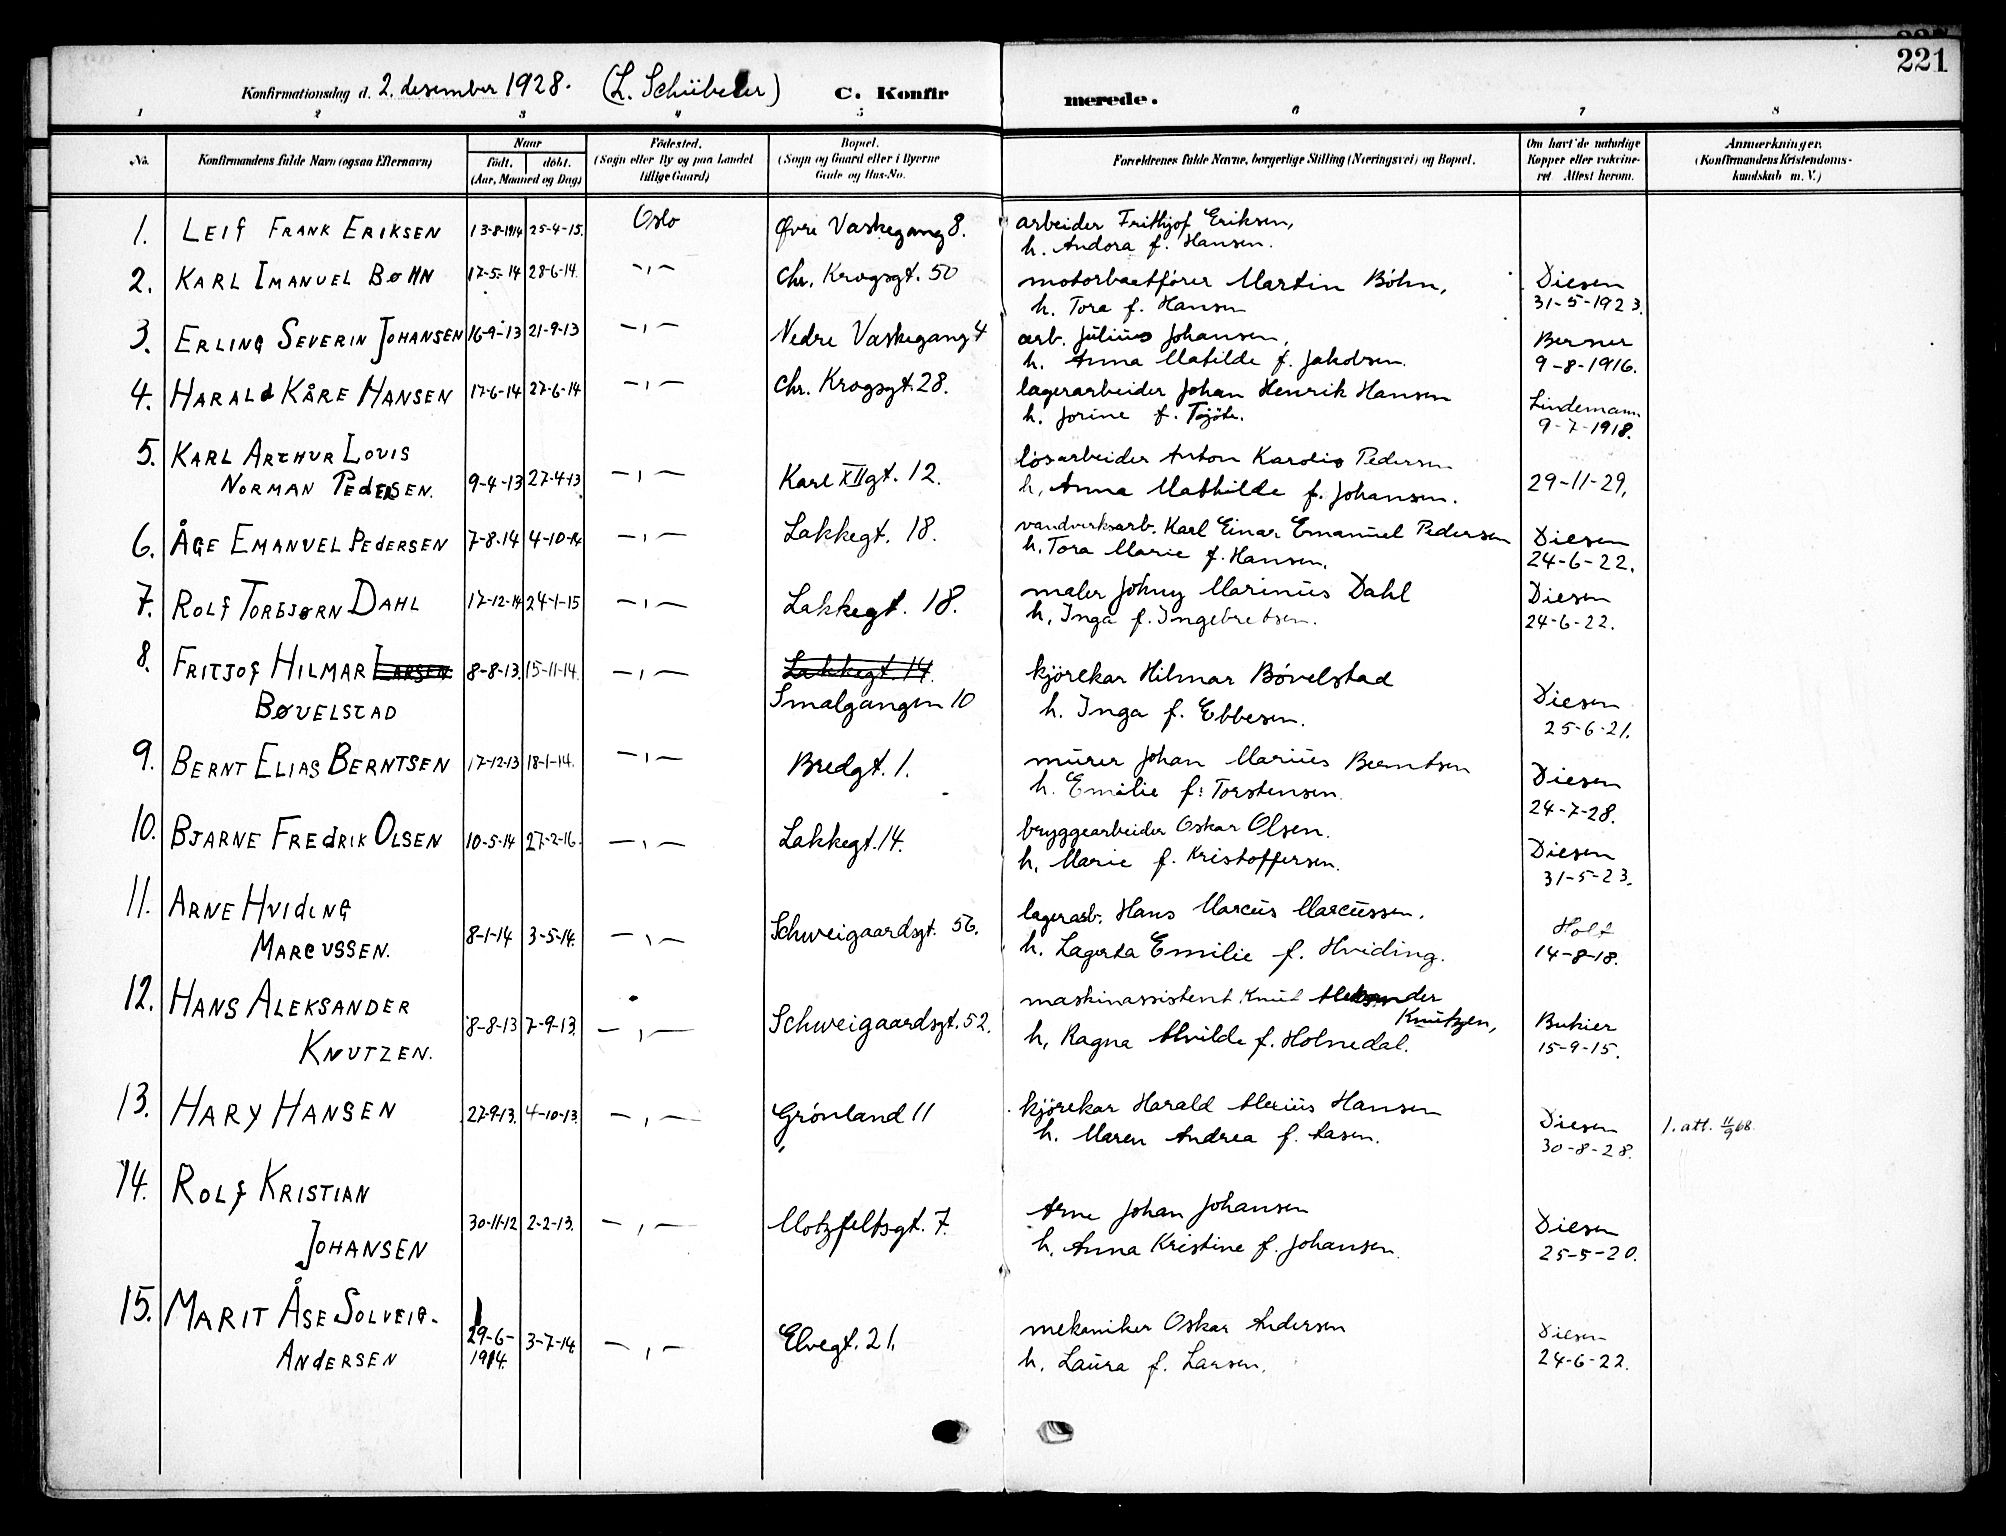 221
Konfirmationsdag d. 2. desember 1928. (L. Schübeler) C. Konfirmerede.
1 2 3 4 5 6 7 8
No. Konfirmandens fulde Navn (ogsaa Efternavn) Naar født, døbt. (Aar, Maaned og Dag) Fødested. (Sogn eller By og paa Landet tillige Gaard) Bopæl. (Sogn og Gaard eller i Byerne Gade og Hus-No. Forældrenes fulde Navne, borgerlige Stilling (Næringsvei) og Bopæl. Om havt de naturlige Kopper eller vakcineret Attest herom. Anmærkninger. (Konfirmandens Kristendomskundskab m. V.)
1. LEIF FRANK ERIKSEN 13-8-1914 25-4-15. Oslo Øvre Vaskegang 8. arbeider Frithjof Eriksen,
h. Andora f. Hansen.
2. KARL IMANUEL BØHN 17-5-14 28-6-14. -"- Chr. Krogsgt. 50 motorbaatfører Martin Böhn, Diesen
h. Tora f. Hansen 31-5-1923.
3. ERLING SEVERIN JOHANSEN 16-9-13 21-9-13 -"- Nedre Vaskegang 4 arb. Julius Johansen, Berner
h. Anna Matilde f. Jakobsen. 9-8-1916.
4. HARALD KÅRE HANSEN 17-6-14 27-6-14 -"- Chr. Krogsgt. 28. lagerarbeider Johan Henrik Hansen Lindemann
h. Jorine f. 9-7-1918.
5. KARL ARTHUR LOUIS løsarbeider Anton Karolio Pedersen
NORMAN PEDERSEN. 9-4-13 27-4-13 -"- Karl XII gt. 12. h. Anna Mathilde f. Johansen. 29-11-29.
6. ÅGE EMANUEL PEDERSEN 7-8-14 4-10-14 -"- Lakkegt. 18. vandverksarb. Karl Einar Emanuel Pedersen Diesen
h. Tora Marie f. Hansen. 24-6-22.
7. ROLF TORBJØRN DAHL 17-12-14 24-1-15 -"- Lakkegt. 18. maler Johny Marinius Dahl Diesen
h. Inga f. Ingebretsen. 24-6-22.
8. FRITJOF HILMAR LARSEN 8-8-13. 15-11-14. -"- Lakkegt. 14. kjørekar Hilmar Bøvelstad Diesen
BØVELSTAD Smalgangen 10 h. Inga f. Ebbesen. 25-6-21.
9. BERNT ELIAS BERNTSEN 17-12-13 18-1-14. -"- Bredgt. 1. murer Johan Marius Berntsen Diesen
h. Emilie f. Torstensen. 24-7-28.
10. BJARNE FREDRIK OLSEN 10-5-14 27-2-16. -"- Lakkegt. 14. bryggearbeider Oskar Olsen. Diesen
h. Marie f. Kristoffersen. 31-5-23.
11. ARNE HVIDING lagerarb. Hans Marcus Marcussen. Holt
MARCUSSEN. 8-1-14 3-5-14. -"- Schweigaardsgt. 56. h. Lagerta Emilie f. Hviding. 14-8-18.
12. HANS ALEKSANDER maskinassistent Knut Aleksander
KNUTZEN. 8-8-13 7-9-13. -"- Schweigaardsgt. 52. Knutzen, Bukier
h. Ragna Alvilde f. Holmedal. 15-9-15.
13. HARY HANSEN 27-9-13. 4-10-13. -"- Grønland 11 kjørekar Harald Alexius Hansen Diesen 1. att. 11/9 68.
h. Maren Andrea f. Aasen. 30-8-28.
14. ROLF KRISTIAN
JOHANSEN 30-11-12 2-2-13. -"- Motzfeltsgt. 7. Arne Johan Johansen Diesen
h. Anna Kristine f. Johansen. 25-5-20.
15. MARIT ÅSE SOLVEIG-
ANDERSEN 29-6-1914. 3-7-14 -"- Elvegt. 21. mekaniker Oskar Andersen Diesen
h. Laura f. Larsen. 24-6-22.